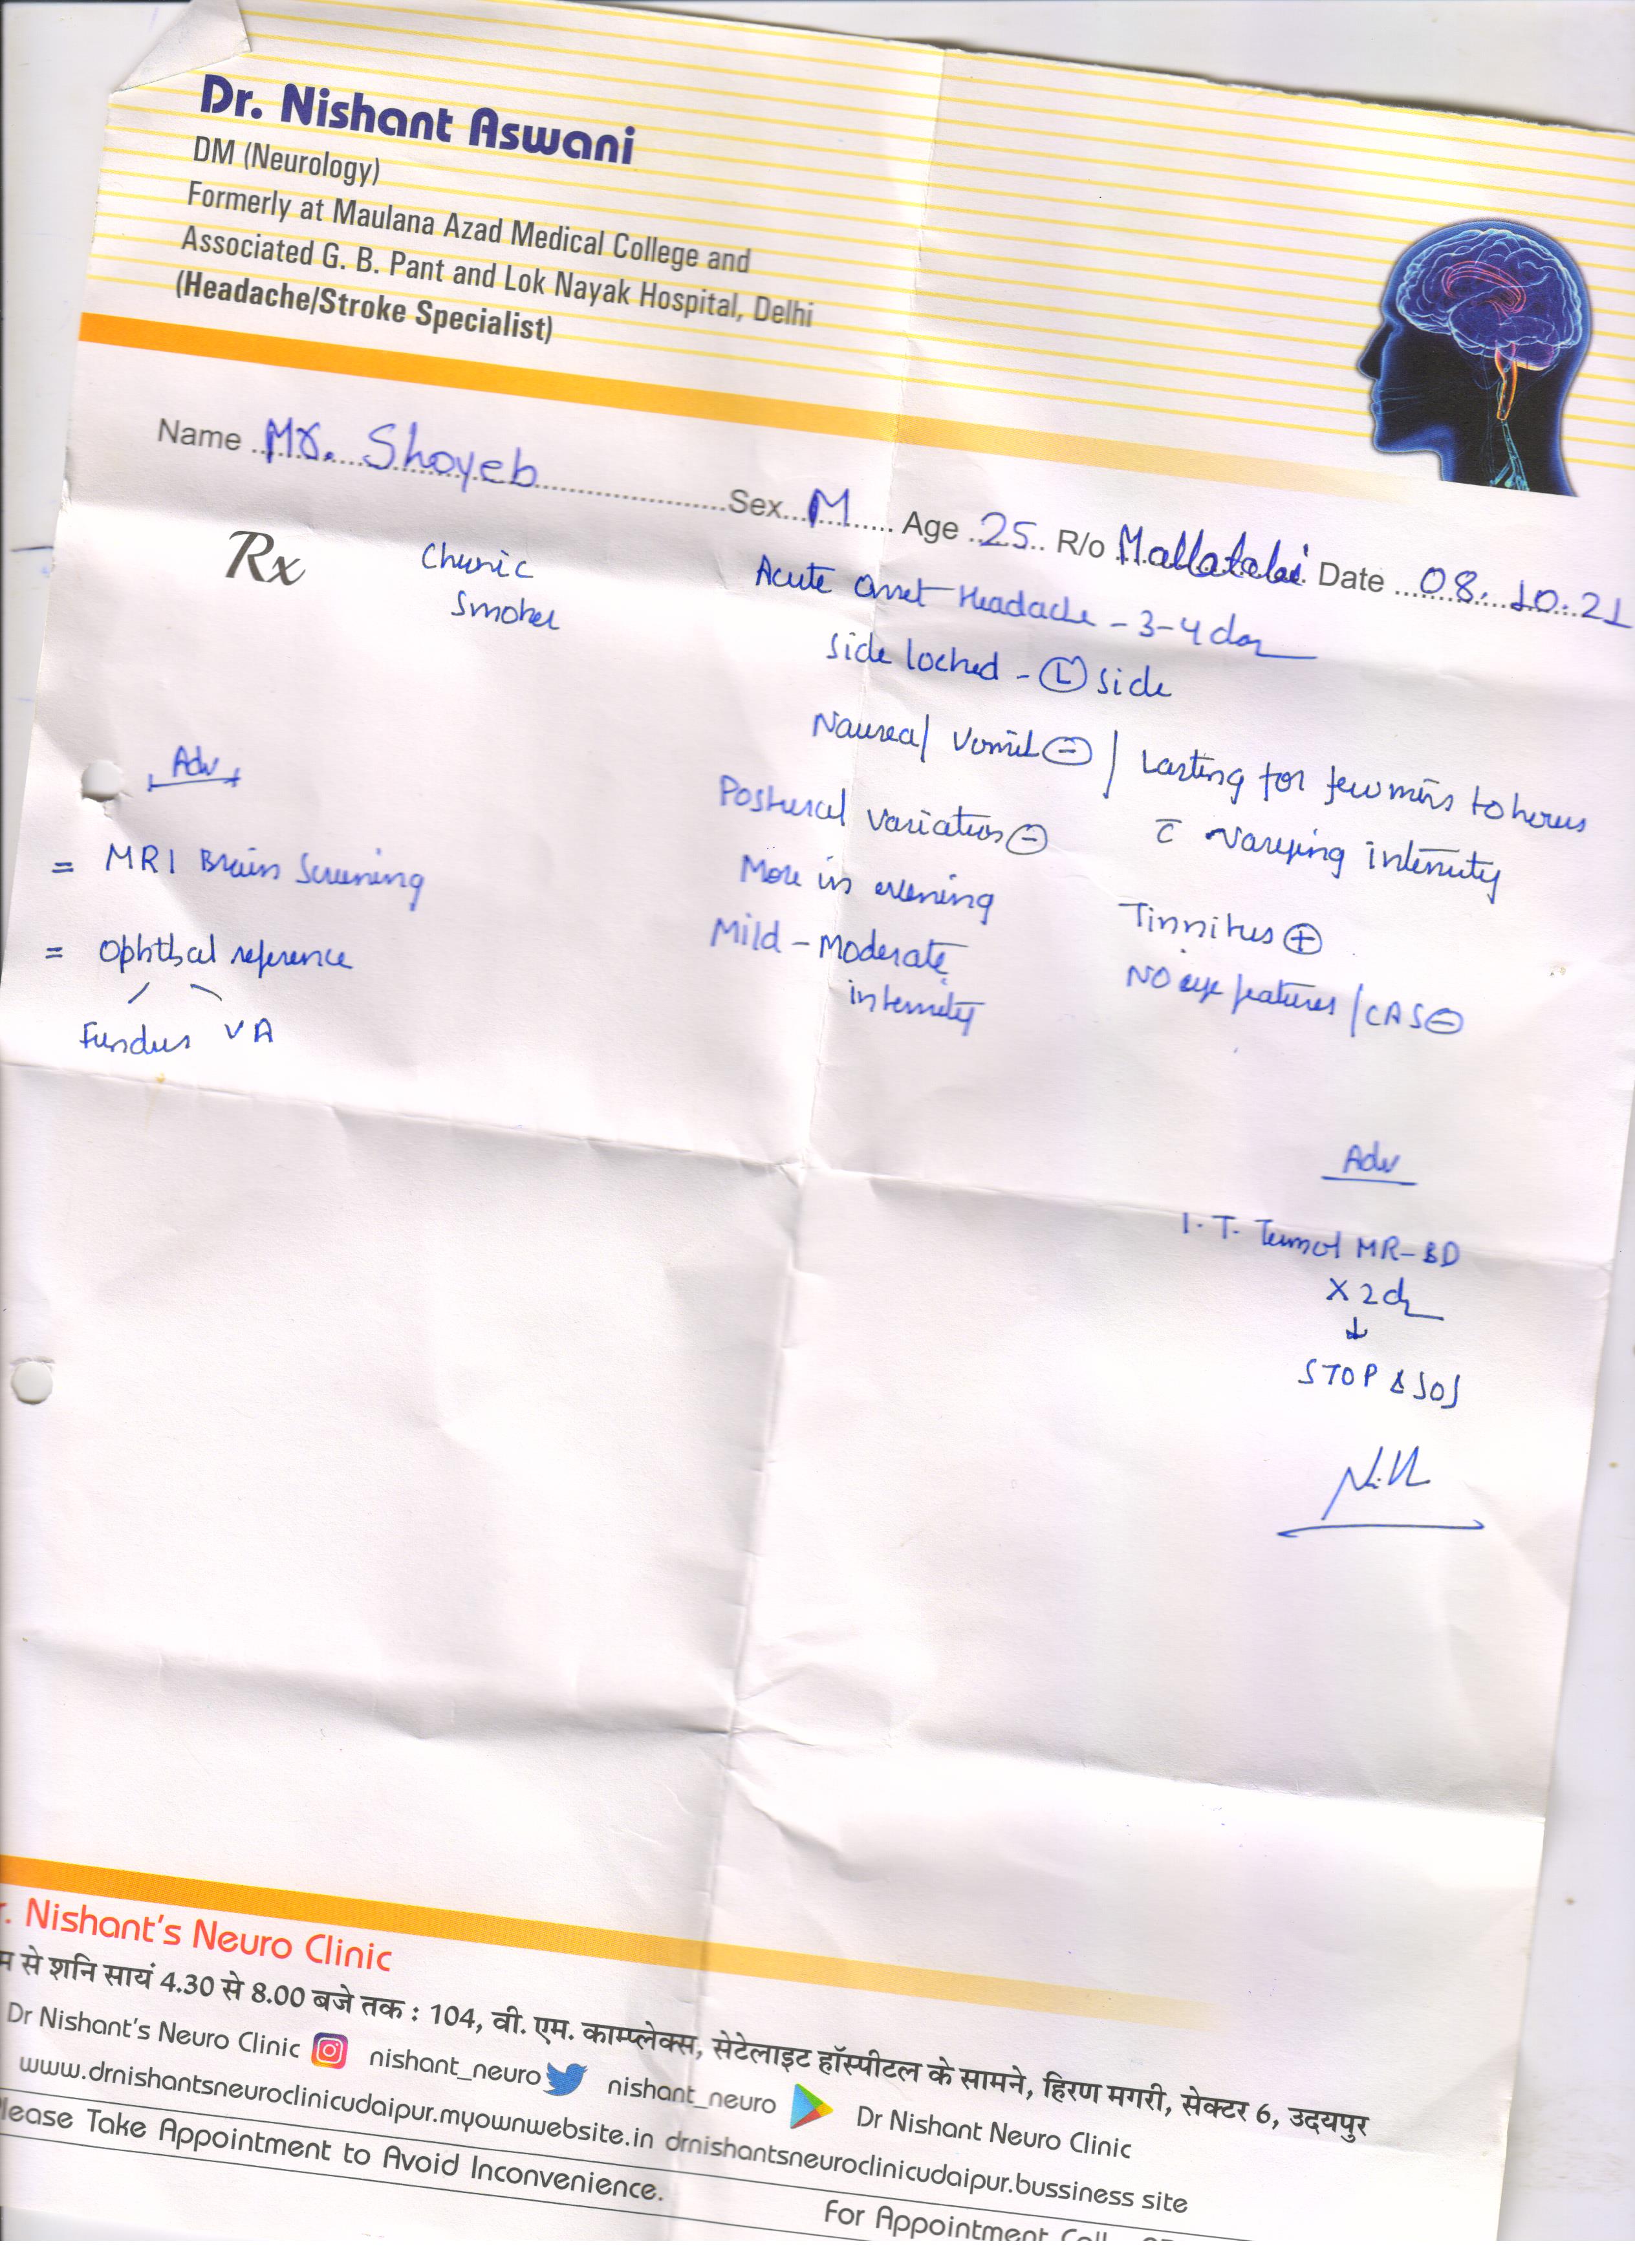 Dr. Nishant Aswani
DM (Neurology)
Formerly at Maulana Azad Medical College and
Associated G. B. Pant and Lok Nayak Hospital, Delhi
(Headache/Stroke Specialist)
Name Mr. Shoyeb Sex M Age 25 R/o Mallatalai Date 08.10.21
Rx
Chronic
Smoker
Acute onset Headache - 3-4 day
Side locked - (L) side
Nausea / Vomit (-) / Lasting for few mins to hours
c̄ varying intensity
Postural variation (-)
More in evening
Mild - Moderate
intensity
Tinnitus (+)
NO eye features / CAS (-)
Adv
= MRI Brain Screening
= Ophthal reference
Fundus VA
Adv
1. T. MR-BD
X 2d
↓
STOP & SOS
. Nishant's Neuro Clinic
म से शनि सायं 4.30 से 8.00 बजे तक : 104, वी. एम. काम्प्लेक्स, सेटेलाइट हॉस्पीटल के सामने, हिरण मगरी, सेक्टर 6, उदयपुर
Dr Nishant's Neuro Clinic nishant_neuro nishant_neuro Dr Nishant Neuro Clinic
www.drnishantsneuroclinicudaipur.myownwebsite.in drnishantsneuroclinicudaipur.bussiness site
lease Take Appointment to Avoid Inconvenience.
For Appointment